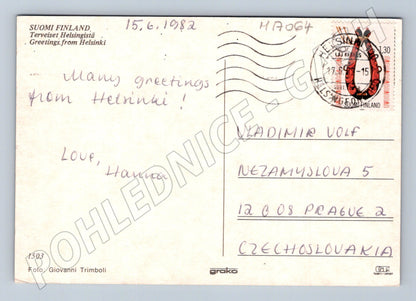 SUOMI FINLAND
Terveiset Helsingistä
Greetings from Helsinki
15.6.1982
HA064
Many greetings
from Helsinki!
Love,
Hanna
HELSINKI
HELSINGFORS
1,30
SUOMI FINLAND
VLADIMIR VOLF
NEZAMYSLOVA 5
12 808 PRAGUE 2
CZECHOSLOVAKIA
1503
Foto: Giovanni Trimboli
groko
POHLEDNICE -